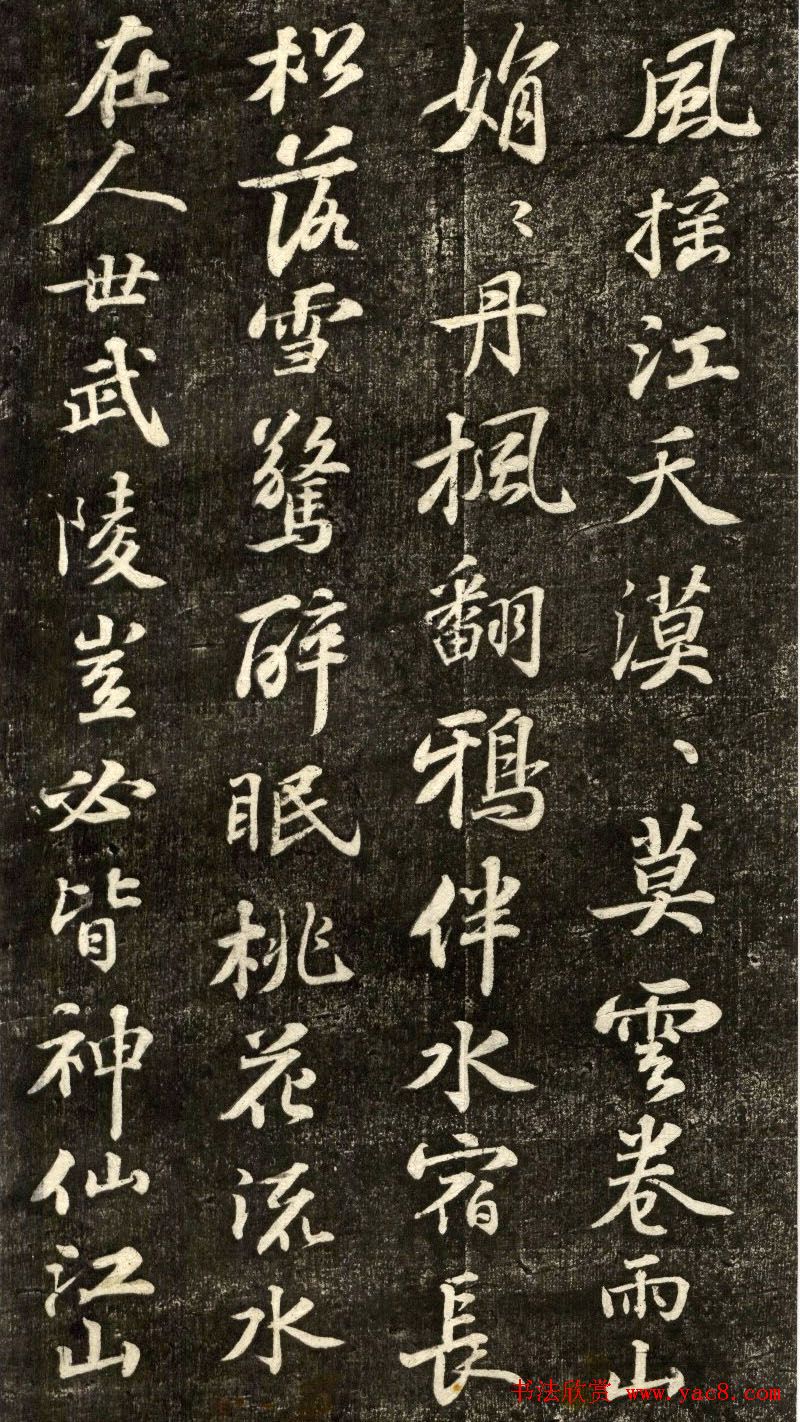 風摇江天漠〻莫雲卷雨山
娟〻丹楓翻鴉伴水宿長
松落雪驚醉眠桃花流水
在人世武陵豈必皆神仙江山
书法欣赏 www.yac8.com